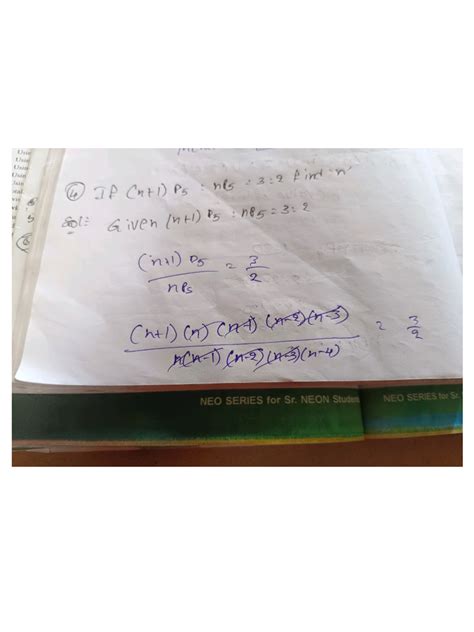 ④ If (n+1) P₅ : nP₅ = 3:2 find 'n'
Sol: Given (n+1) P₅ : nP₅ = 3:2
(n+1) P₅ / nP₅ = 3/2
(n+1) (n) (n-1) (n-2) (n-3) / n(n-1) (n-2) (n-3) (n-4) = 3/2
NEO SERIES for Sr. NEON Studen
NEO SERIES for Sr.